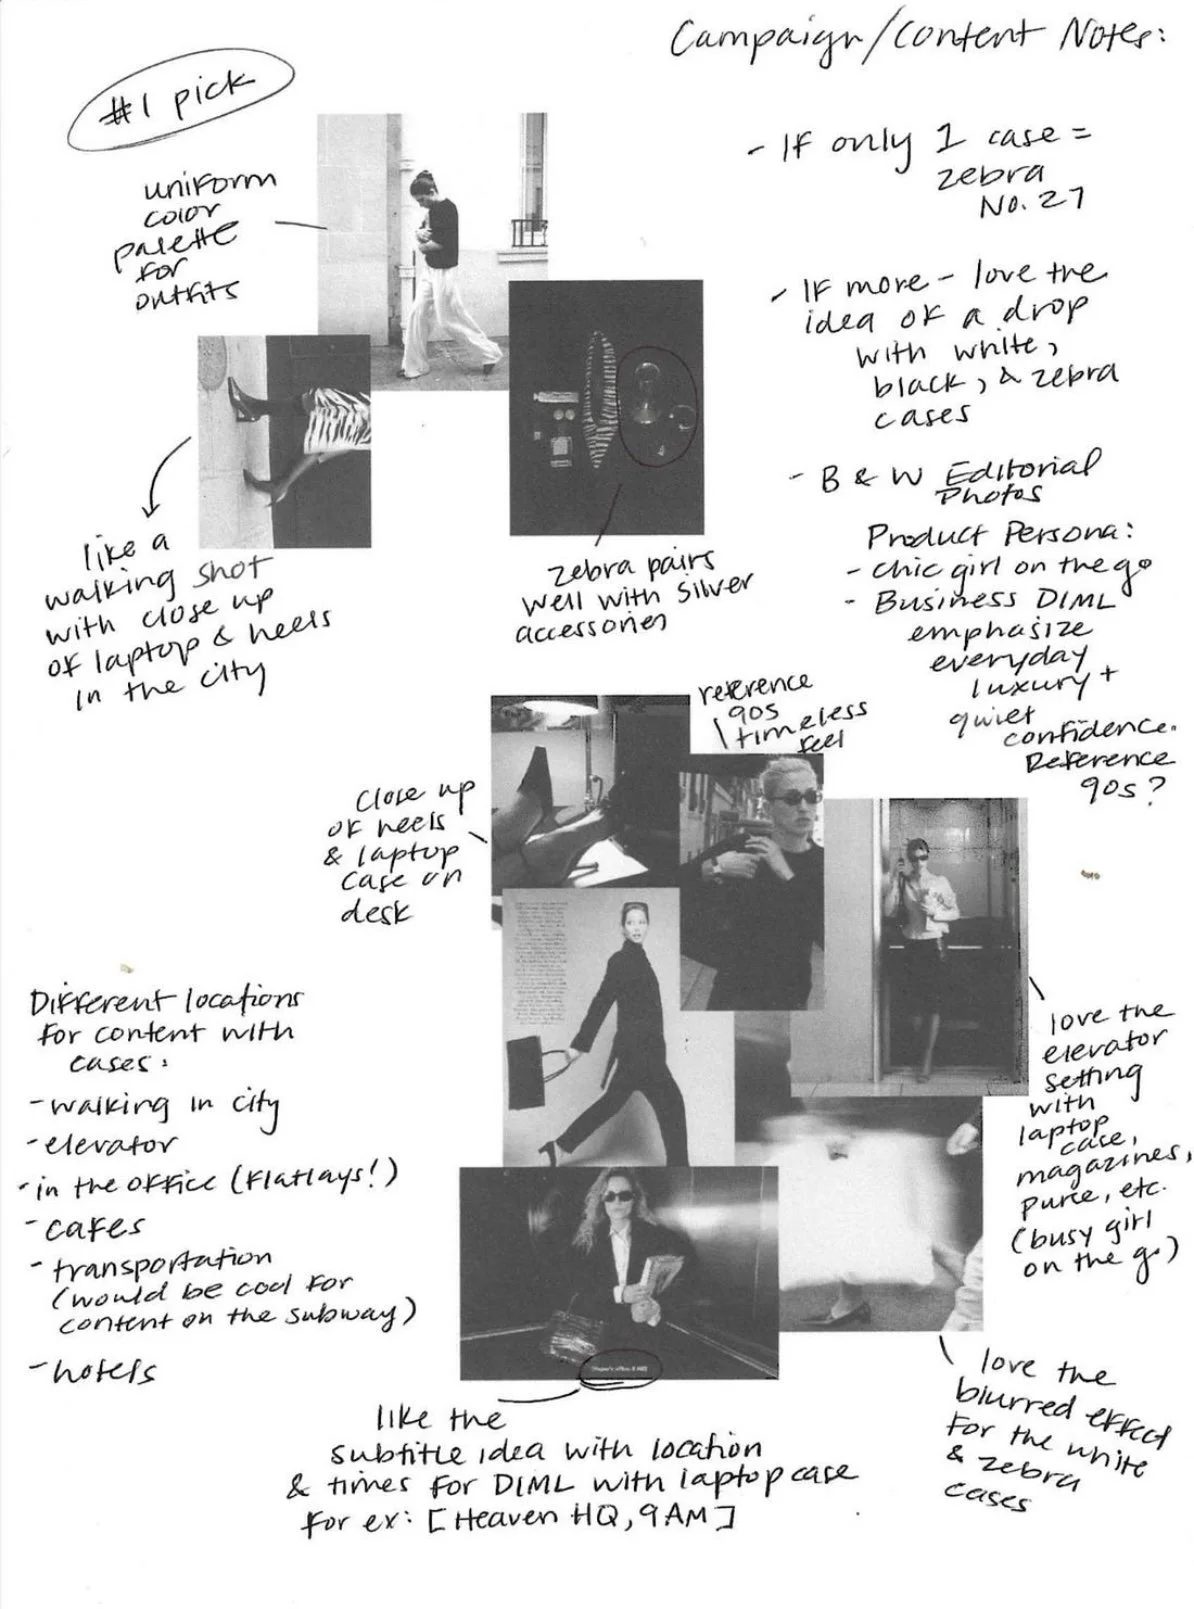 Campaign/Content Notes:
#1 pick
uniform
color
palette
for
outfits
- If only 1 case =
zebra
No. 27
- If more - love the
idea of a drop
with white,
black, & zebra
cases
- B & W Editorial
Photos
Product Persona:
- chic girl on the go
- Business DIML
emphasize
everyday
luxury +
quiet
confidence.
Reference
90s?
like a
walking shot
with close up
of laptop & heels
in the city
zebra pairs
well with silver
accessories
reference
90s
timeless
feel
close up
of heels
& laptop
case on
desk
Different locations
for content with
cases:
- walking in city
- elevator
- in the office (flatlays!)
- cafes
- transportation
(would be cool for
content on the subway)
- hotels
love the
elevator
setting
with
laptop
case,
magazines,
purse, etc.
(busy girl
on the go)
like the
subtitle idea with location
& times for DIML with laptop case
for ex: [Heaven HQ, 9AM]
love the
blurred effect
for the white
& zebra
cases